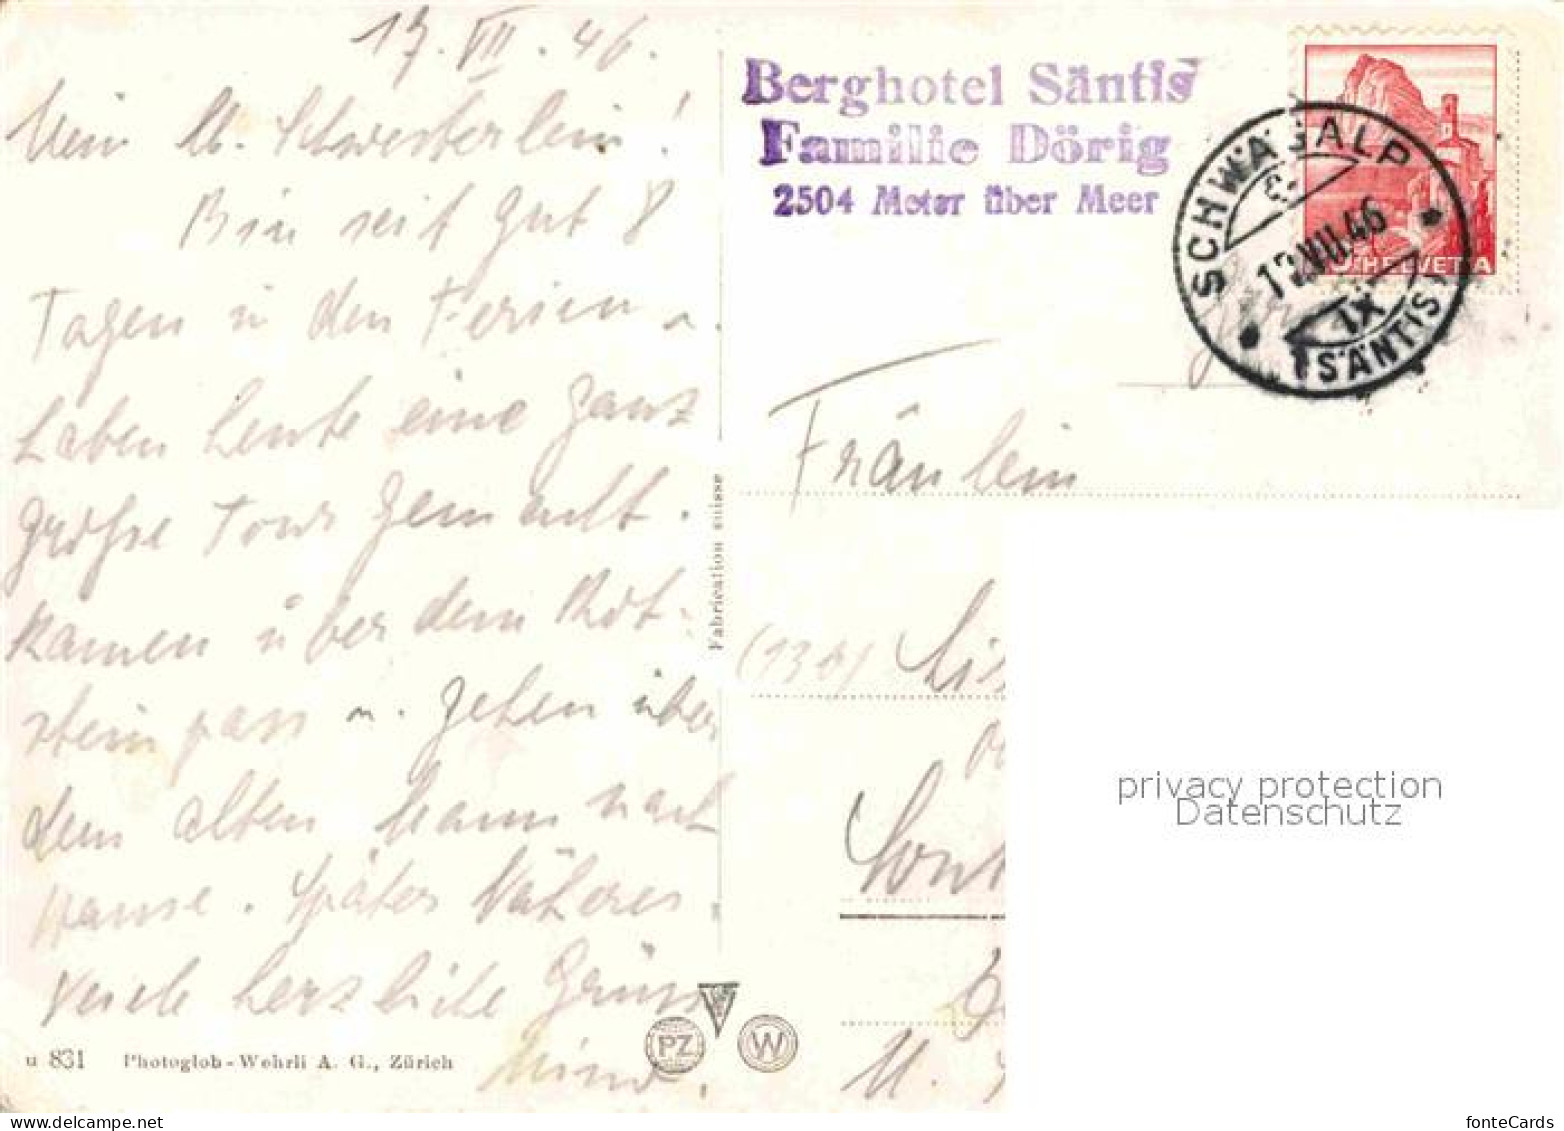 17. VII. 46.
Mein lb. Schwesterlein!
Bin seit gut 8
Tagen in den Ferien u.
haben heute eine ganz
große Tour gemacht.
Kamen über den Rot-
steinpass u. gehen über
den alten Mann nach
Hause. Später Näheres
Viele herzliche Grüsse
u 831 Photoglob-Wehrli A. G., Zürich
PZ W
Fabrication suisse
Berghotel Säntis
Familie Dörig
2504 Meter über Meer
SCHWÄGALP
VII.46
IX
(SÄNTIS)
HELVETIA
Fräulein
privacy protection
Datenschutz
fonteCards